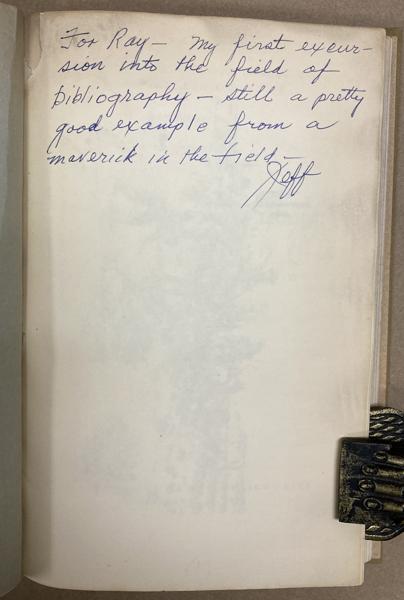 For Ray— My first excur-
sion into the field of
bibliography — still a pretty
good example from a
maverick in the field—
Jeff